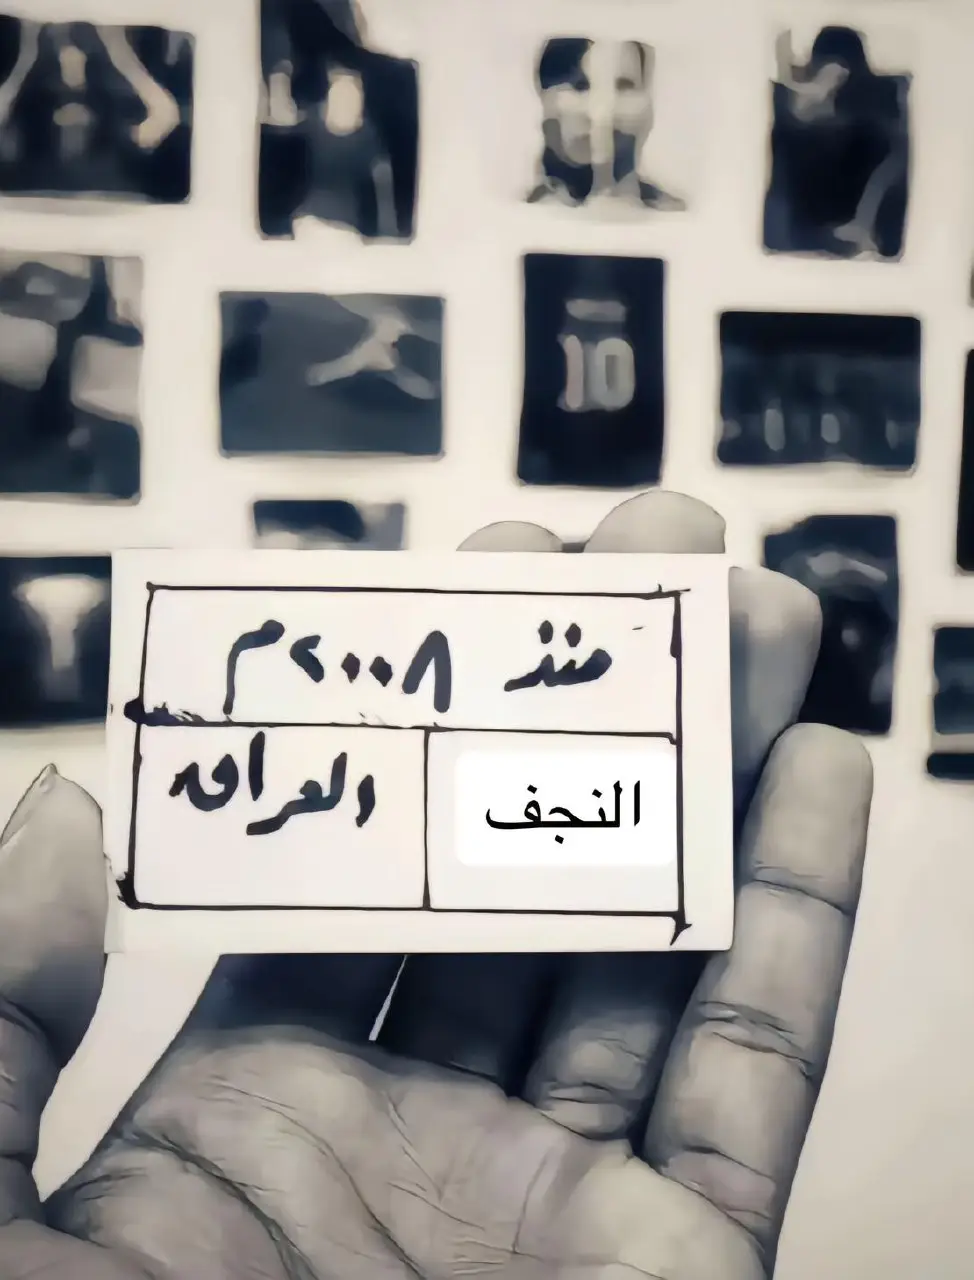 10
منذ ٢٠٠٨ م
النجف العراق